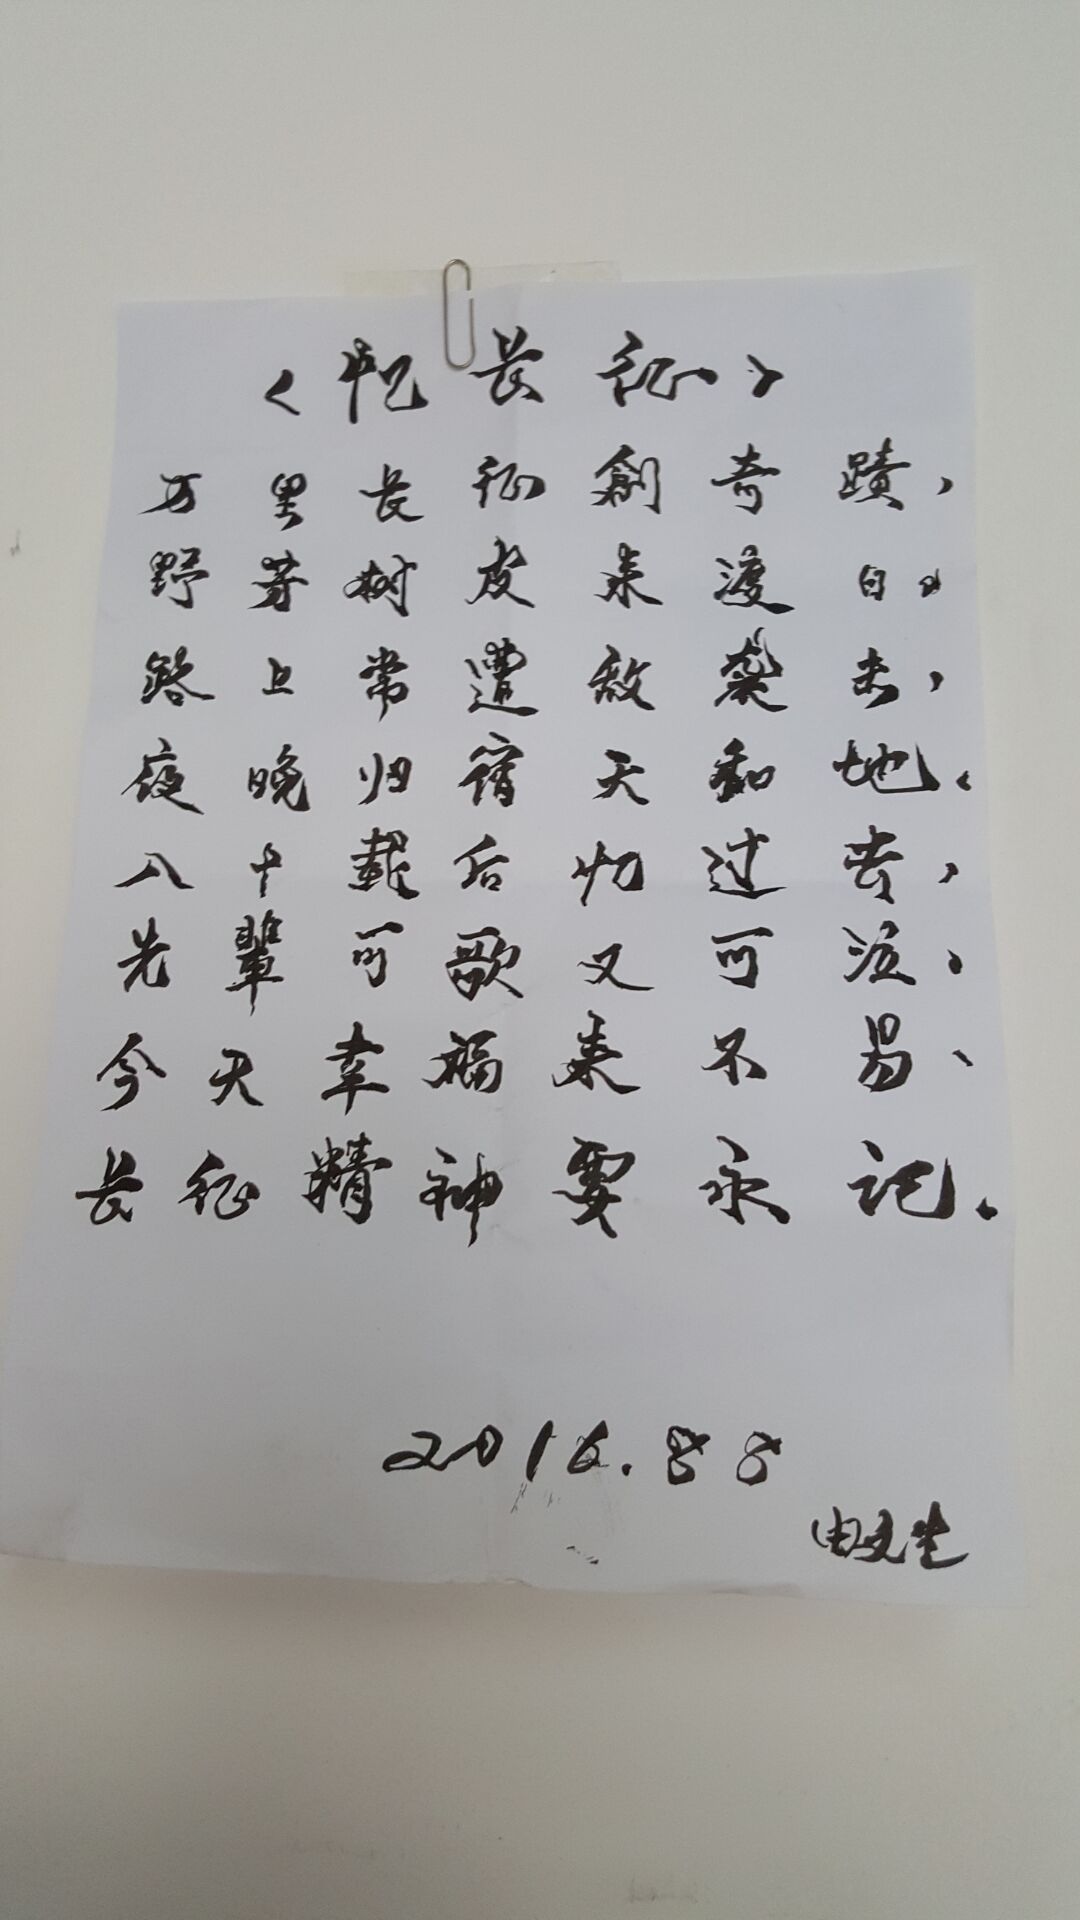 《忆长征》
万里长征創奇蹟，
野芽树皮来渡日。
路上常遭敌袭击，
夜晚归宿天和地。
八十载后忆过去，
先輩可歌又可泣，
今天幸福来不易、
长征精神要永记.
2016.8 8
由文生